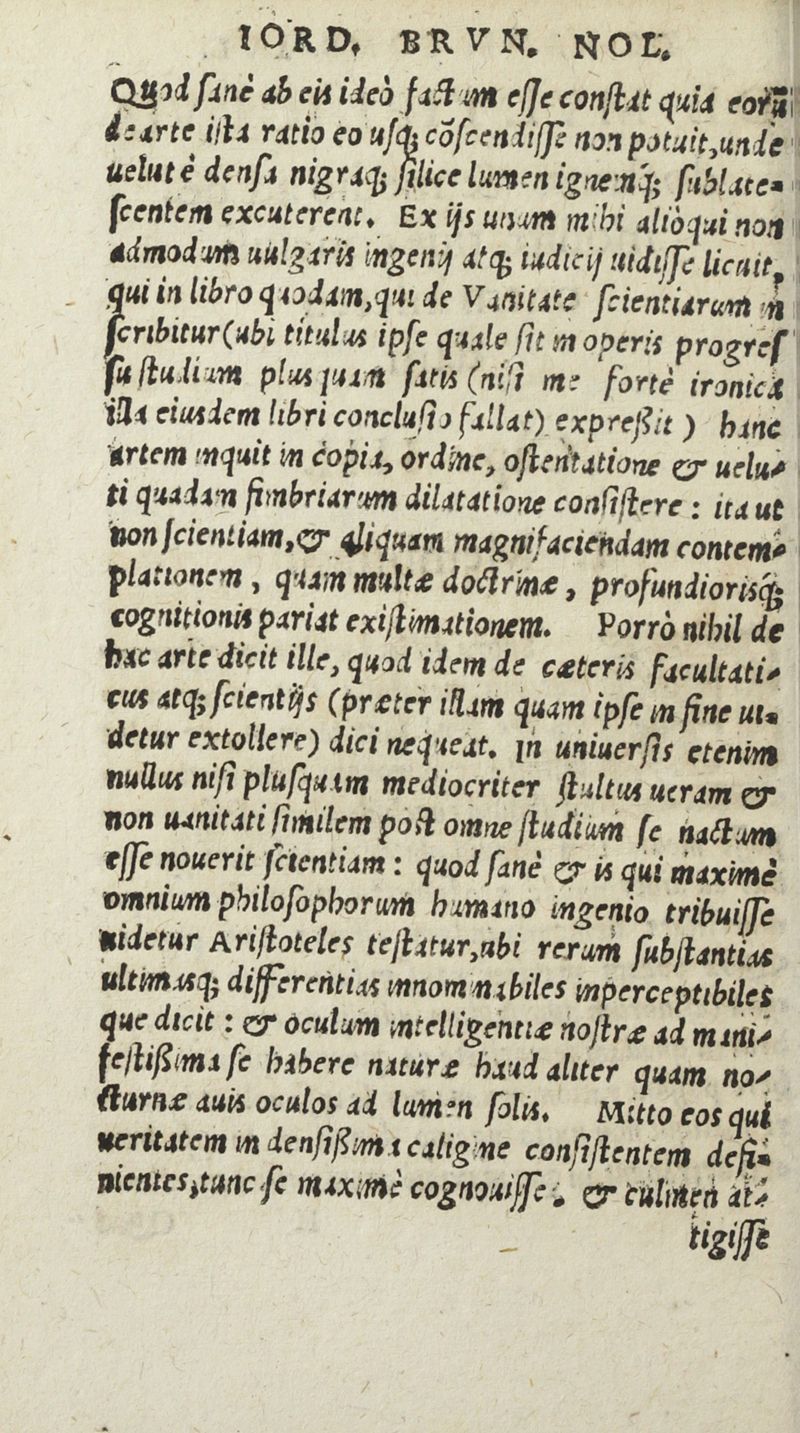 IORD. BRVN. NOL.
Quod sanè ab eis ideò factum esse constat quia eorũ
de arte ista ratio eo usq; cõscendisse non potuit, unde
uelut è densa nigraq; silice lumen ignemq́; sublate-
scentem excuterent. Ex ijs unum mihi alioqui non
admodum uulgaris ingenij atq; iudicij uidisse licuit,
qui in libro quodam, qui de Vanitate scientiarum in
scribitur (ubi titulus ipse quale sit in operis progres
su studium plus quam satis (nisi me fortè ironica
illa eiusdem libri conclusio fallat) expreßit ) hanc
artem inquit in copia, ordine, ostentatione & uelu-
ti quadam fimbriarum dilatatione consistere : ita ut
non scientiam, & aliquam magnifaciendam contem-
plationem , quam multæ doctrinæ , profundiorisq́;
cognitionis pariat existimationem. Porrò nihil de
hac arte dicit ille, quod idem de cæteris facultati-
cus atq; scientijs (præter illam quam ipse in fine ui-
detur extollere) dici nequeat. In uniuersis etenim
nullus nisi plusquam mediocriter stultus ueram &
non uanitati similem post omne studium se nactum
esse nouerit scientiam : quod sanè & is qui maximè
omnium philosophorum humano ingenio tribuisse
uidetur Aristoteles testatur, ubi rerum substantias
ultimasq; differentias innominabiles inperceptibiles
que dicit : & oculum intelligentiæ nostræ ad mani-
festißima se habere naturæ haud aliter quam no-
cturnæ auis oculos ad lumen solis. Mitto eos qui
ueritatem in densißima caligine consistentem defi-
nientes, tunc se maximè cognouisse , & culmen at-
tigisse